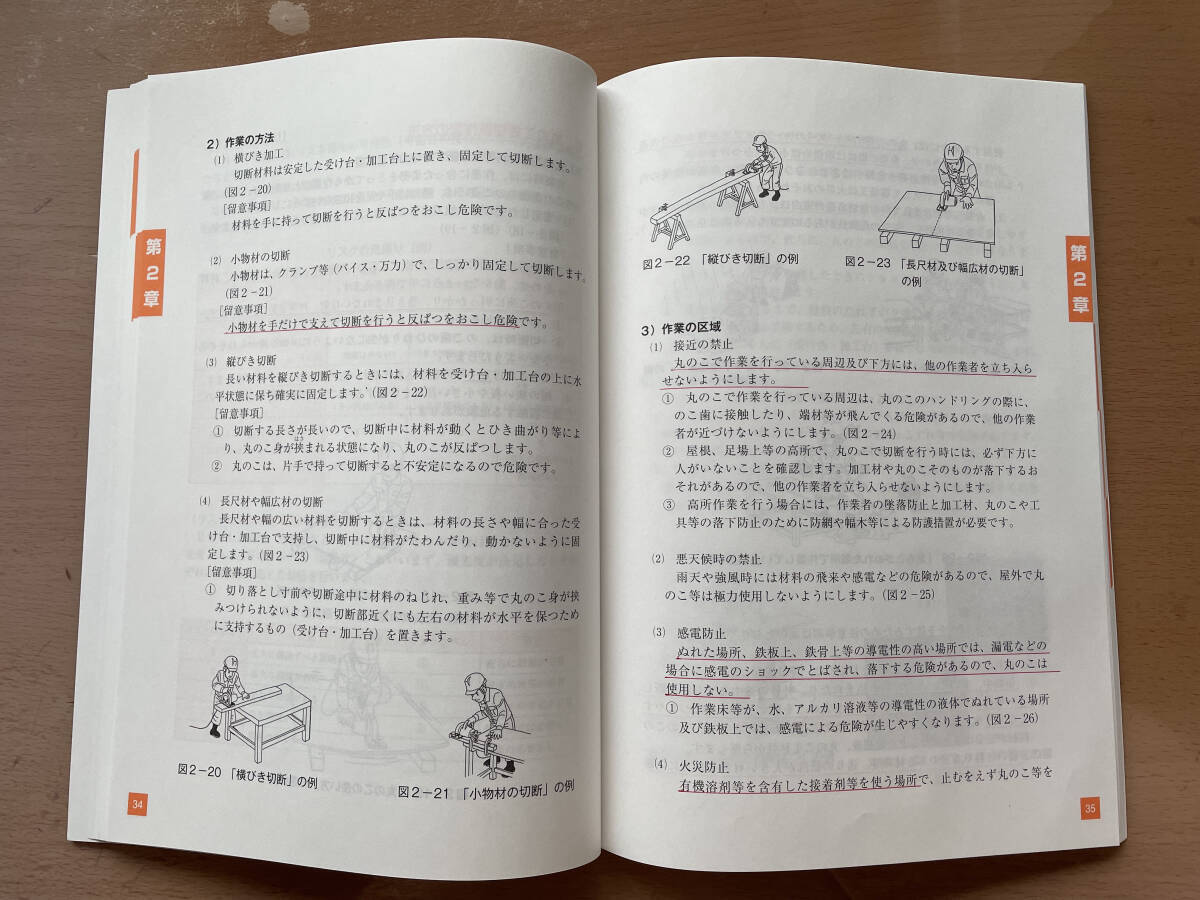 2）作業の方法
(1) 横びき加工
切断材料は安定した受け台・加工台上に置き、固定して切断します。
(図2－20)
［留意事項］
材料を手に持って切断を行うと反ぱつをおこし危険です。
(2) 小物材の切断
小物材は、クランプ等（バイス・万力）で、しっかり固定して切断します。
(図2－21)
［留意事項］
小物材を手だけで支えて切断を行うと反ぱつをおこし危険です。
(3) 縦びき切断
長い材料を縦びき切断するときには、材料を受け台・加工台の上に水
平状態に保ち確実に固定します。(図2－22)
［留意事項］
① 切断する長さが長いので、切断中に材料が動くとひき曲がり等によ
り、丸のこ身が挟まれる状態になり、丸のこが反ぱつします。
② 丸のこは、片手で持って切断すると不安定になるので危険です。
(4) 長尺材や幅広材の切断
長尺材や幅の広い材料を切断するときは、材料の長さや幅に合った受
け台・加工台で支持し、切断中に材料がたわんだり、動かないように固
定します。(図2－23)
［留意事項］
① 切り落とし寸前や切断途中に材料のねじれ、重み等で丸のこ身が挟
みつけられないように、切断部近くにも左右の材料が水平を保つため
に支持するもの（受け台・加工台）を置きます。
図2－20 「横びき切断」の例
図2－21 「小物材の切断」の例
第2章
34
図2－22 「縦びき切断」の例
図2－23 「長尺材及び幅広材の切断」
の例
3）作業の区域
(1) 接近の禁止
丸のこで作業を行っている周辺及び下方には、他の作業者を立ち入ら
せないようにします。
① 丸のこで作業を行っている周辺は、丸のこのハンドリングの際に、
のこ歯に接触したり、端材等が飛んでくる危険があるので、他の作業
者が近づけないようにします。(図2－24)
② 屋根、足場上等の高所で、丸のこで切断を行う時には、必ず下方に
人がいないことを確認します。加工材や丸のこそのものが落下するお
それがあるので、他の作業者を立ち入らせないようにします。
③ 高所作業を行う場合には、作業者の墜落防止と加工材、丸のこや工
具等の落下防止のために防網や幅木等による防護措置が必要です。
(2) 悪天候時の禁止
雨天や強風時には材料の飛来や感電などの危険があるので、屋外で丸
のこ等は極力使用しないようにします。(図2－25)
(3) 感電防止
ぬれた場所、鉄板上、鉄骨上等の導電性の高い場所では、漏電などの
場合に感電のショックでとばされ、落下する危険があるので、丸のこは
使用しない。
① 作業床等が、水、アルカリ溶液等の導電性の液体でぬれている場所
及び鉄板上では、感電による危険が生じやすくなります。(図2－26)
(4) 火災防止
有機溶剤等を含有した接着剤等を使う場所で、止むをえず丸のこ等を
第2章
35